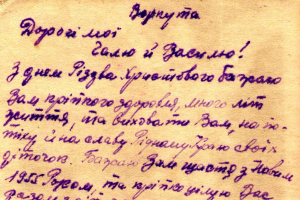 Воркута
Дорогі мої
Галю й Василю!
З днем Різдва Христового бажаю
Вам кріпкого здоровля, много літ
життя, та виховати Вам, на по-
тіху й на славу Рідному Краю своїх
діточок. Бажаю Вам щастя з Новим
1955 Роком, та кріпко цілую Вас